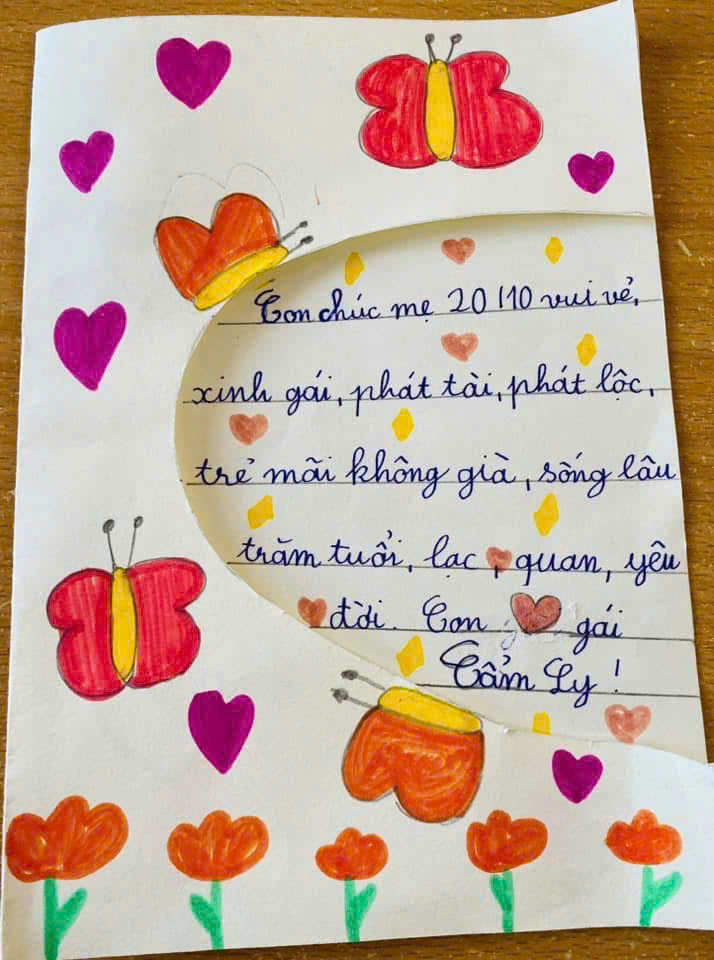 Con chúc mẹ 20/10 vui vẻ,
xinh gái, phát tài, phát lộc,
trẻ mãi không già, sống lâu
trăm tuổi, lạc quan, yêu
đời. Con gái
Cẩm Ly!